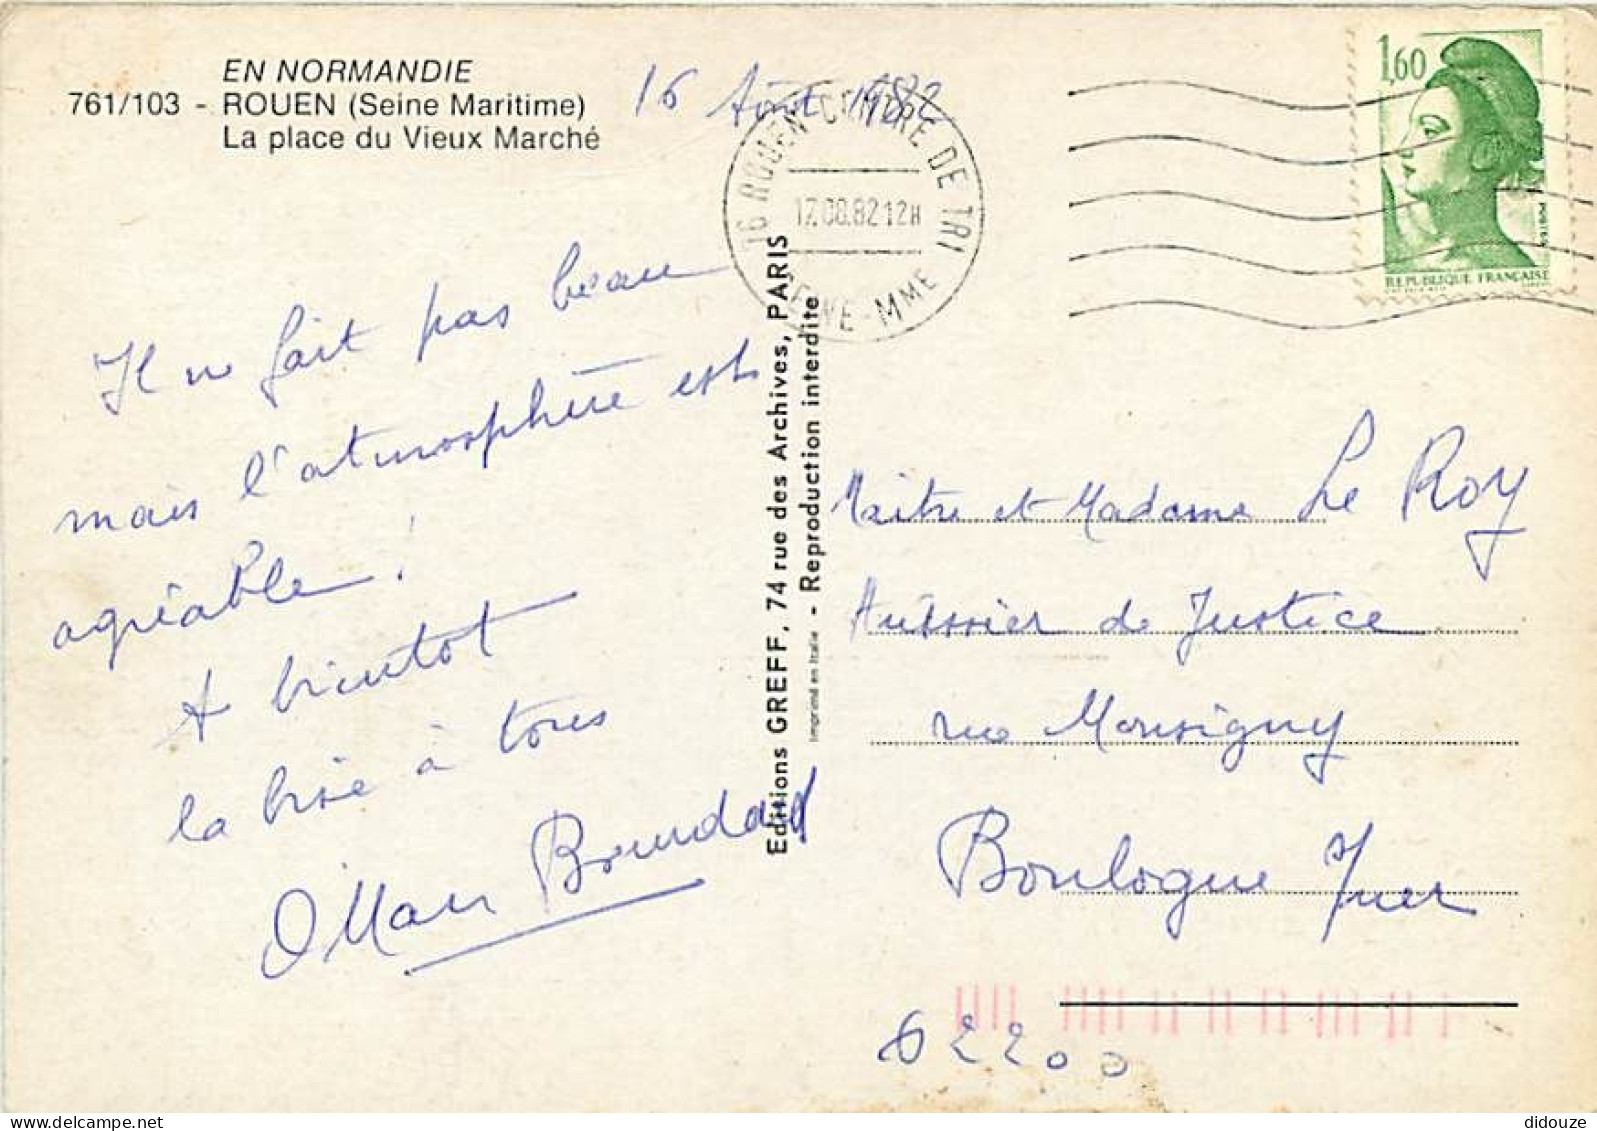 EN NORMANDIE
761/103 - ROUEN (Seine Maritime)
La place du Vieux Marché
16 Août 1982
76 ROUEN CENTRE DE TRI
17.08.82 12H
SEINE-MME
1,60
POSTES
REPUBLIQUE FRANÇAISE
Il ne fait pas beau
mais l'atmosphère est
agréable !
A bientot
la bise à tous
Editions GREFF, 74 rue des Archives, PARIS
Imprimé en Italie - Reproduction interdite
Maître et Madame Le Roy
Huissier de Justice
rue Monsigny
Boulogne s/mer
62200
didouze